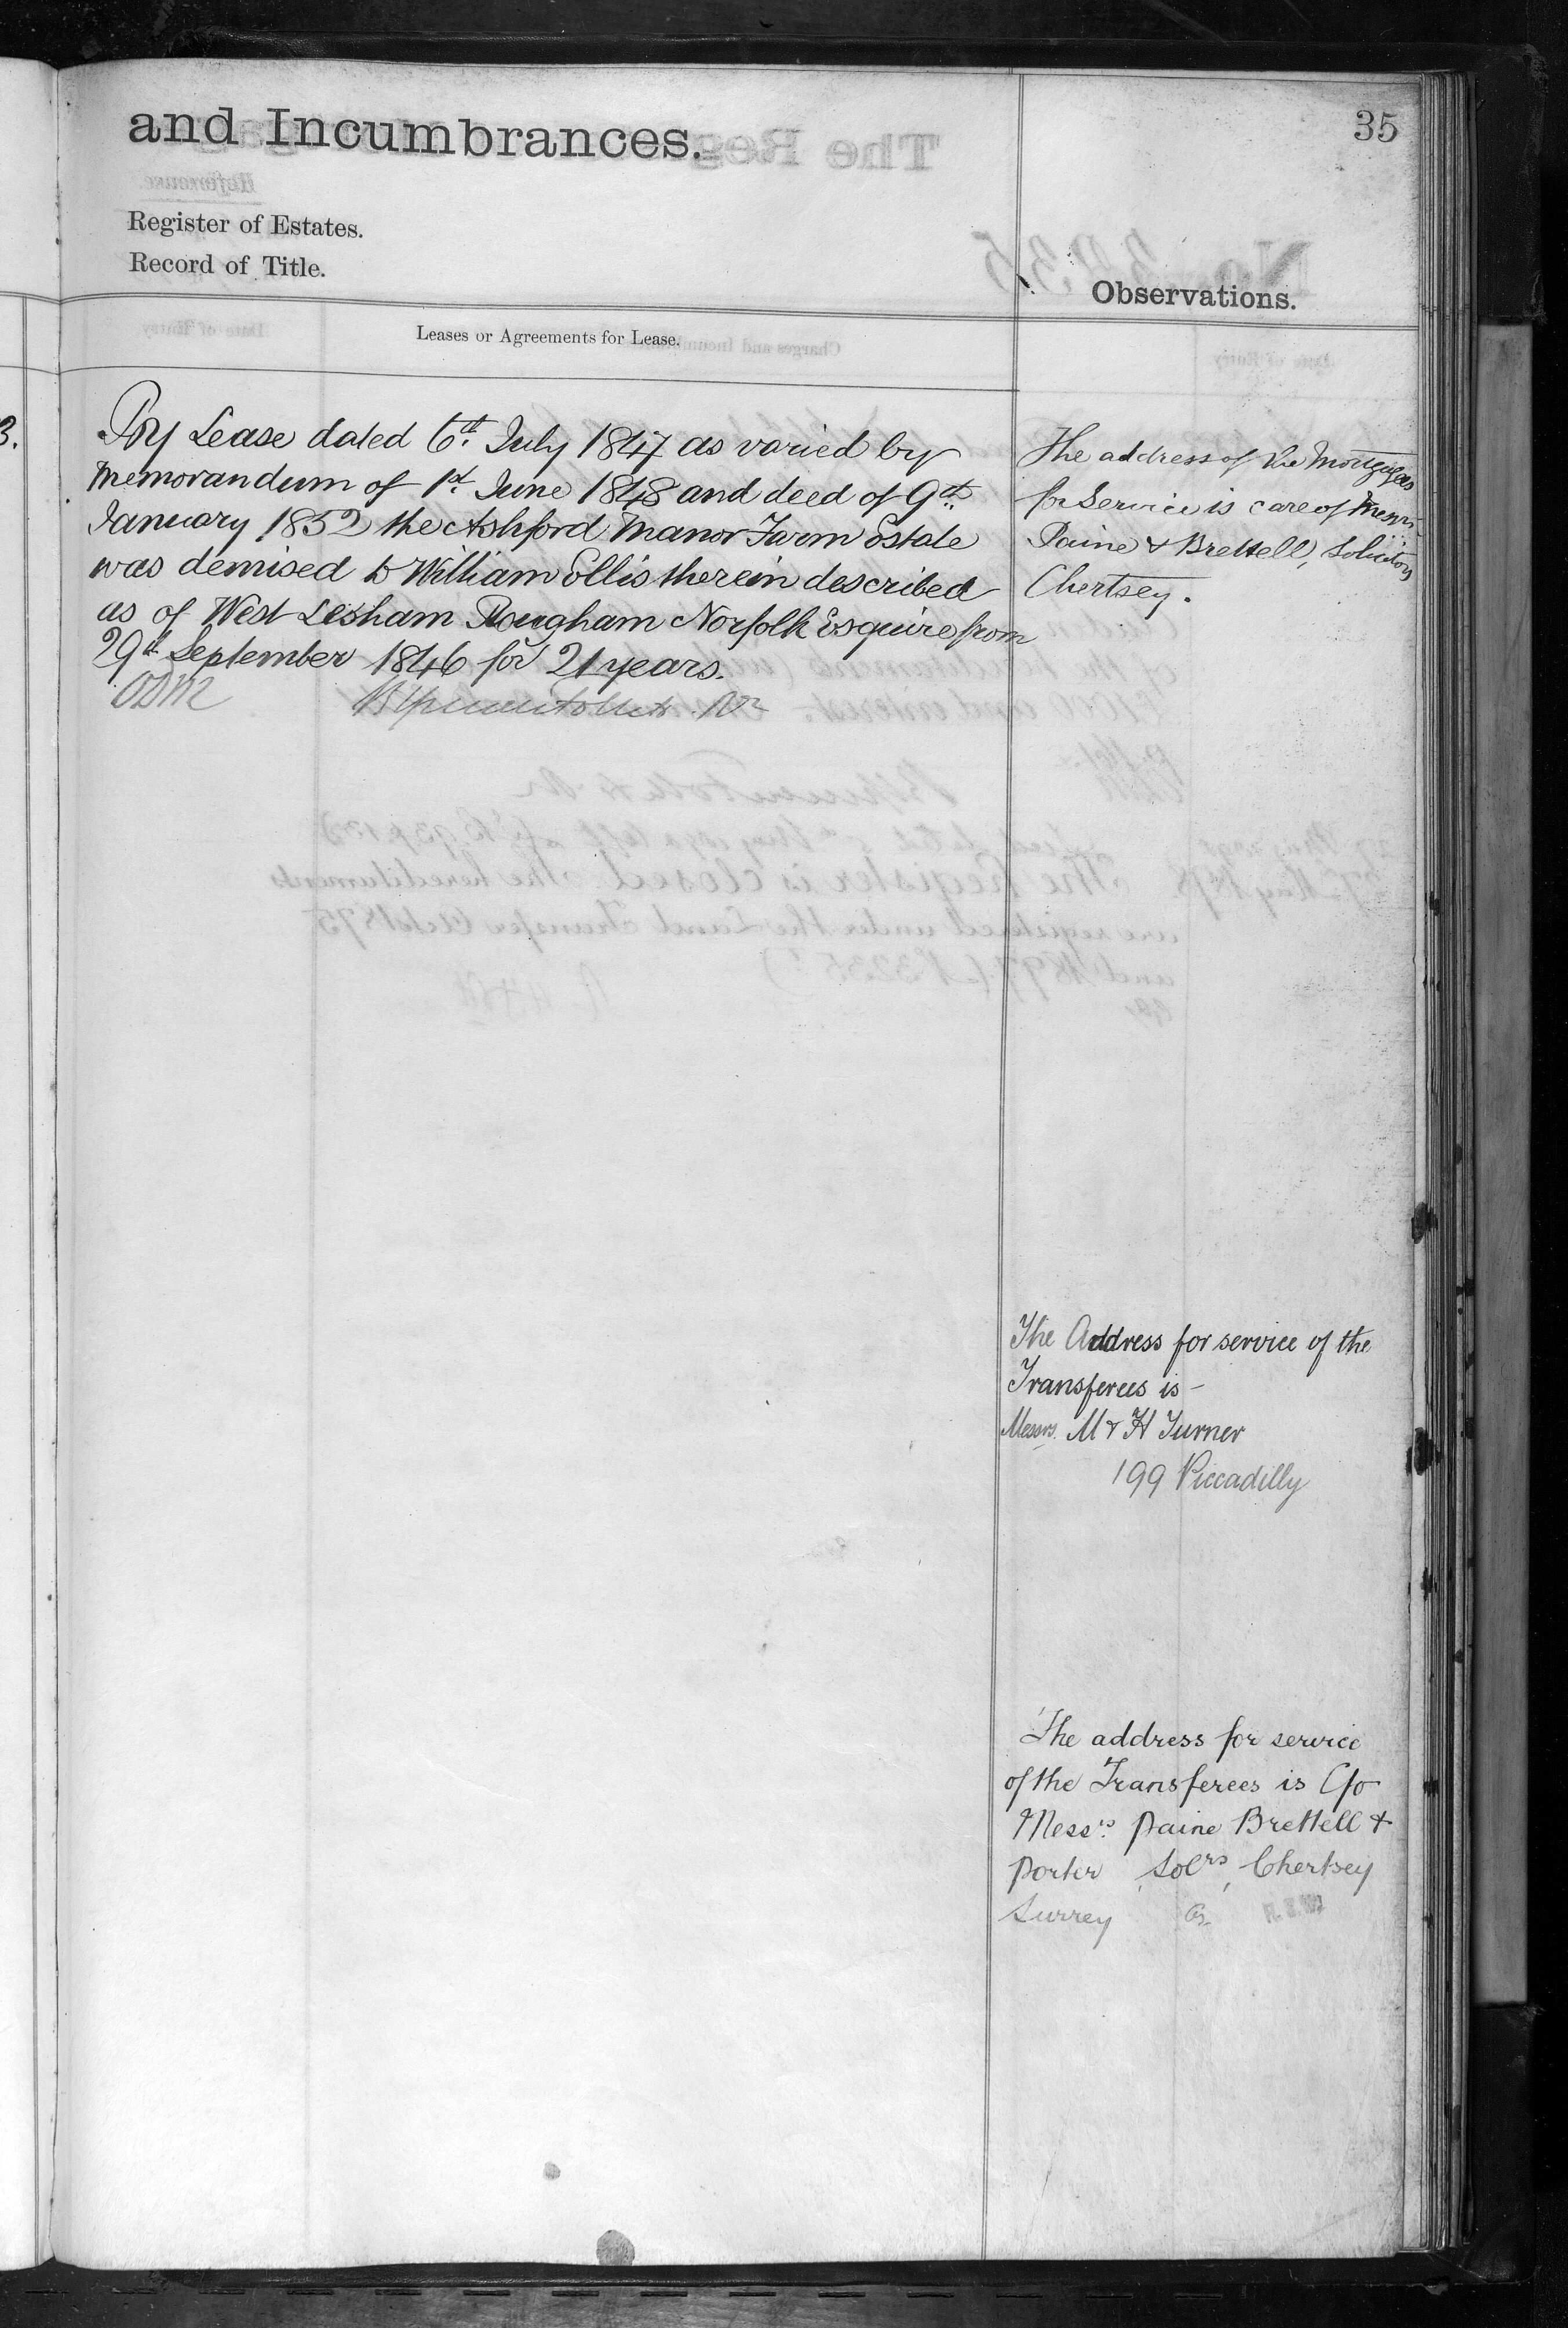 and Incumbrances.
35
Register of Estates.
Record of Title.
Observations.
Leases or Agreements for Lease.
3.
By Lease dated 6th July 1847 as varied by
Memorandum of 1st June 1848 and deed of 9th
January 1852 the Ashford Manor Farm Estate
was demised to William Ellis therein described
as of West Lesham Rougham Norfolk Esquire from
29th September 1846 for 21 years.
The address of the Mortgagees
for Service is care of Messrs
Paine & Brettell, Solicitors
Chertsey.
The Address for service of the
Transferees is -
Messrs. M & H Turner
199 Piccadilly
The address for service
of the Transferees is C/o
Messrs. Paine Brettell &
Porter Solrs, Chertsey
Surrey